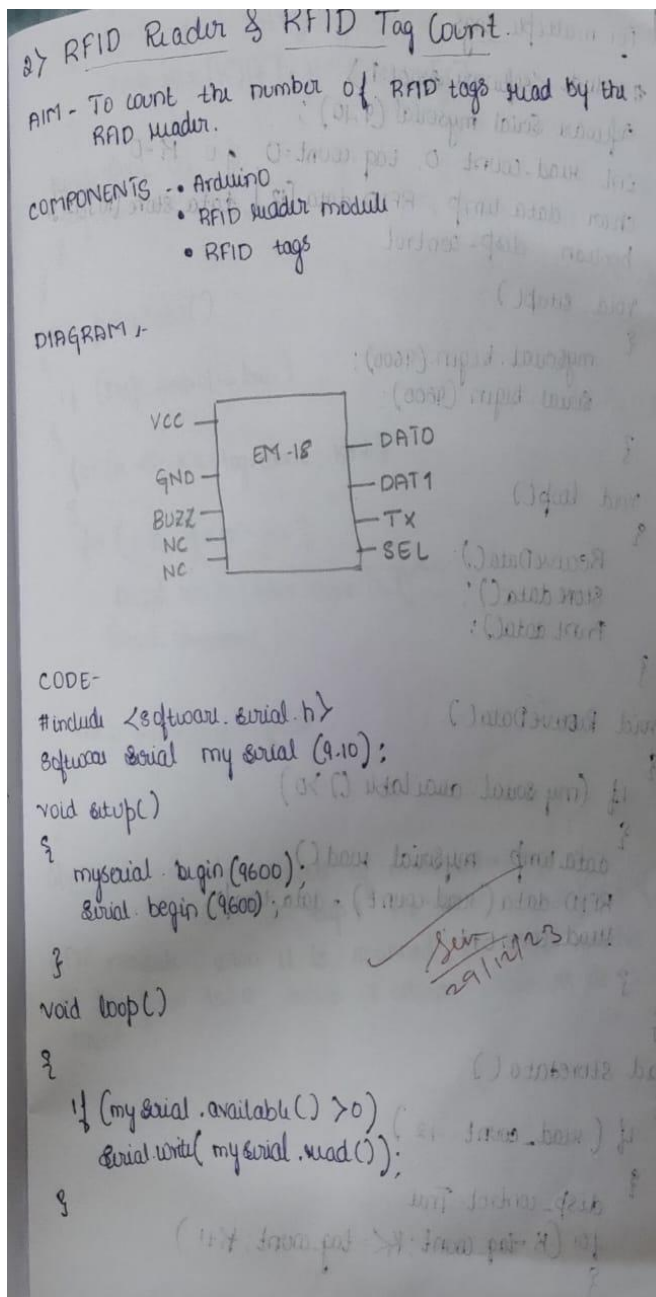 2) RFID Reader & RFID Tag Count.
AIM - To count the number of RFID tags read by the
RFID reader.
COMPONENTS - • Arduino
• RFID reader module
• RFID tags
DIAGRAM :-
VCC
GND
BUZZ
NC
NC
EM-18
DAT0
DAT1
TX
SEL
CODE-
#include <software.serial.h>
software serial my serial (9.10);
void setup()
{
myserial.begin(9600);
serial.begin(9600);
}
29/12/23
void loop()
{
if (my serial.available() >0)
serial.write( my serial.read());
}